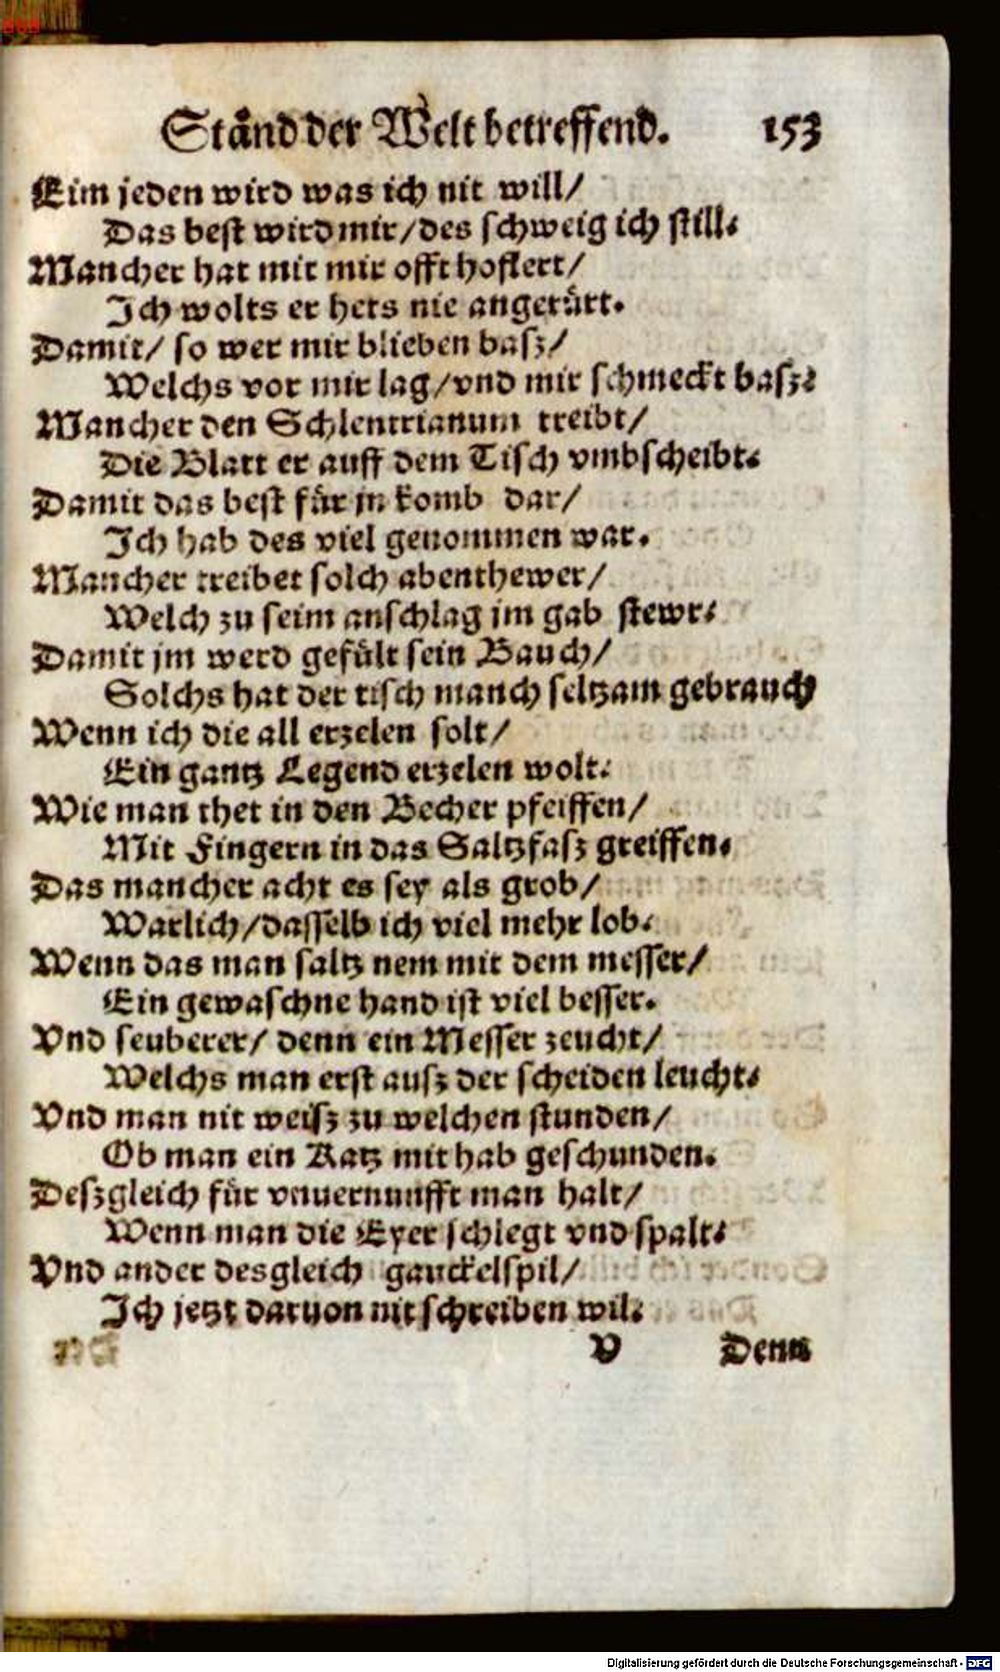 Stånd der Welt betreffend. 153
Eim jeden wird was ich nit will/
Das best wird mir/des schweig ich still.
Mancher hat mit mir offt hofiert/
Ich wolts er hets nie angerürt.
Damit/ so wer mir blieben basz/
Welchs vor mir lag/vnd mir schmeckt basz.
Mancher den Schlentrianum treibt/
Die Blatt er auff dem Tisch vmbscheibt.
Damit das best für jn komb dar/
Ich hab des viel genommen war.
Mancher treibet solch abenthewer/
Welch zu seim anschlag im gab stewr.
Damit jm werd gefült sein Bauch/
Solchs hat der tisch manch seltzam gebrauch
Wenn ich die all erzelen solt/
Ein gantz Legend erzelen wolt.
Wie man thet in den Becher pfeiffen/
Mit Fingern in das Saltzfasz greiffen.
Das mancher acht es sey als grob/
Warlich/dasselb ich viel mehr lob.
Wenn das man saltz nem mit dem messer/
Ein gewaschne hand ist viel besser.
Vnd seuberer/ denn ein Messer zeucht/
Welchs man erst ausz der scheiden leucht.
Vnd man nit weisz zu welchen stunden/
Ob man ein Katz mit hab geschunden.
Deszgleich für vnuernunfft man halt/
Wenn man die Eyer schlegt vnd spalt.
Vnd ander desgleich gauckelspil/
Ich jetzt daruon nit schreiben wil.
V Denn
Digitalisierung gefördert durch die Deutsche Forschungsgemeinschaft - DFG